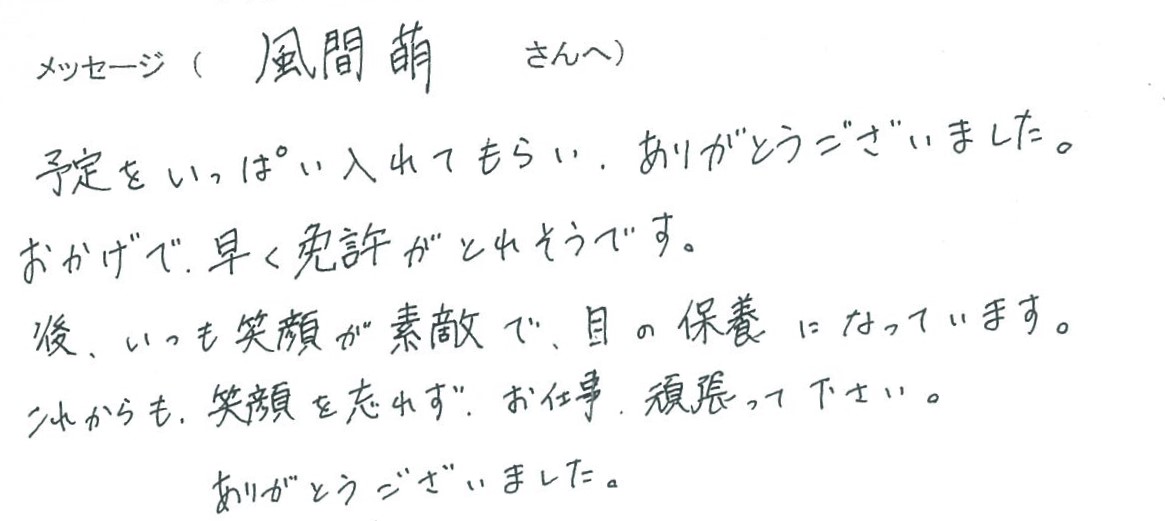 メッセージ（ 風間 萌 さんへ）
予定をいっぱい入れてもらい、ありがとうございました。
おかげで、早く免許がとれそうです。
後、いつも笑顔が素敵で、目の保養になっています。
これからも、笑顔を忘れず、お仕事、頑張って下さい。
ありがとうございました。